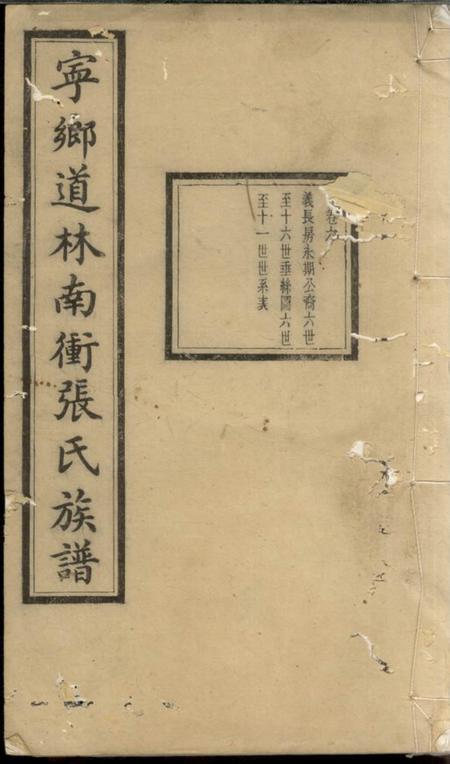 卷九
義長房永期公裔六世
至十六世垂絲圖六世
至十一世世系表
寧鄉道林南衝張氏族譜